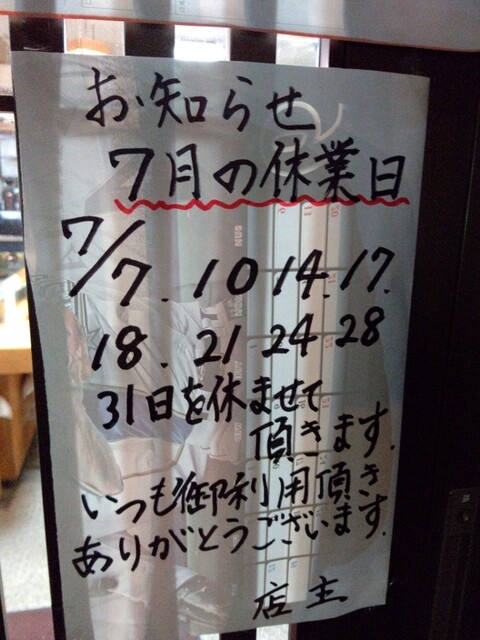 お知らせ
7月の休業日
7/7.10 14.17.
18.21 24 28
31日を休ませて
頂きます.
いつも御利用頂き
ありがとうございます.
店主